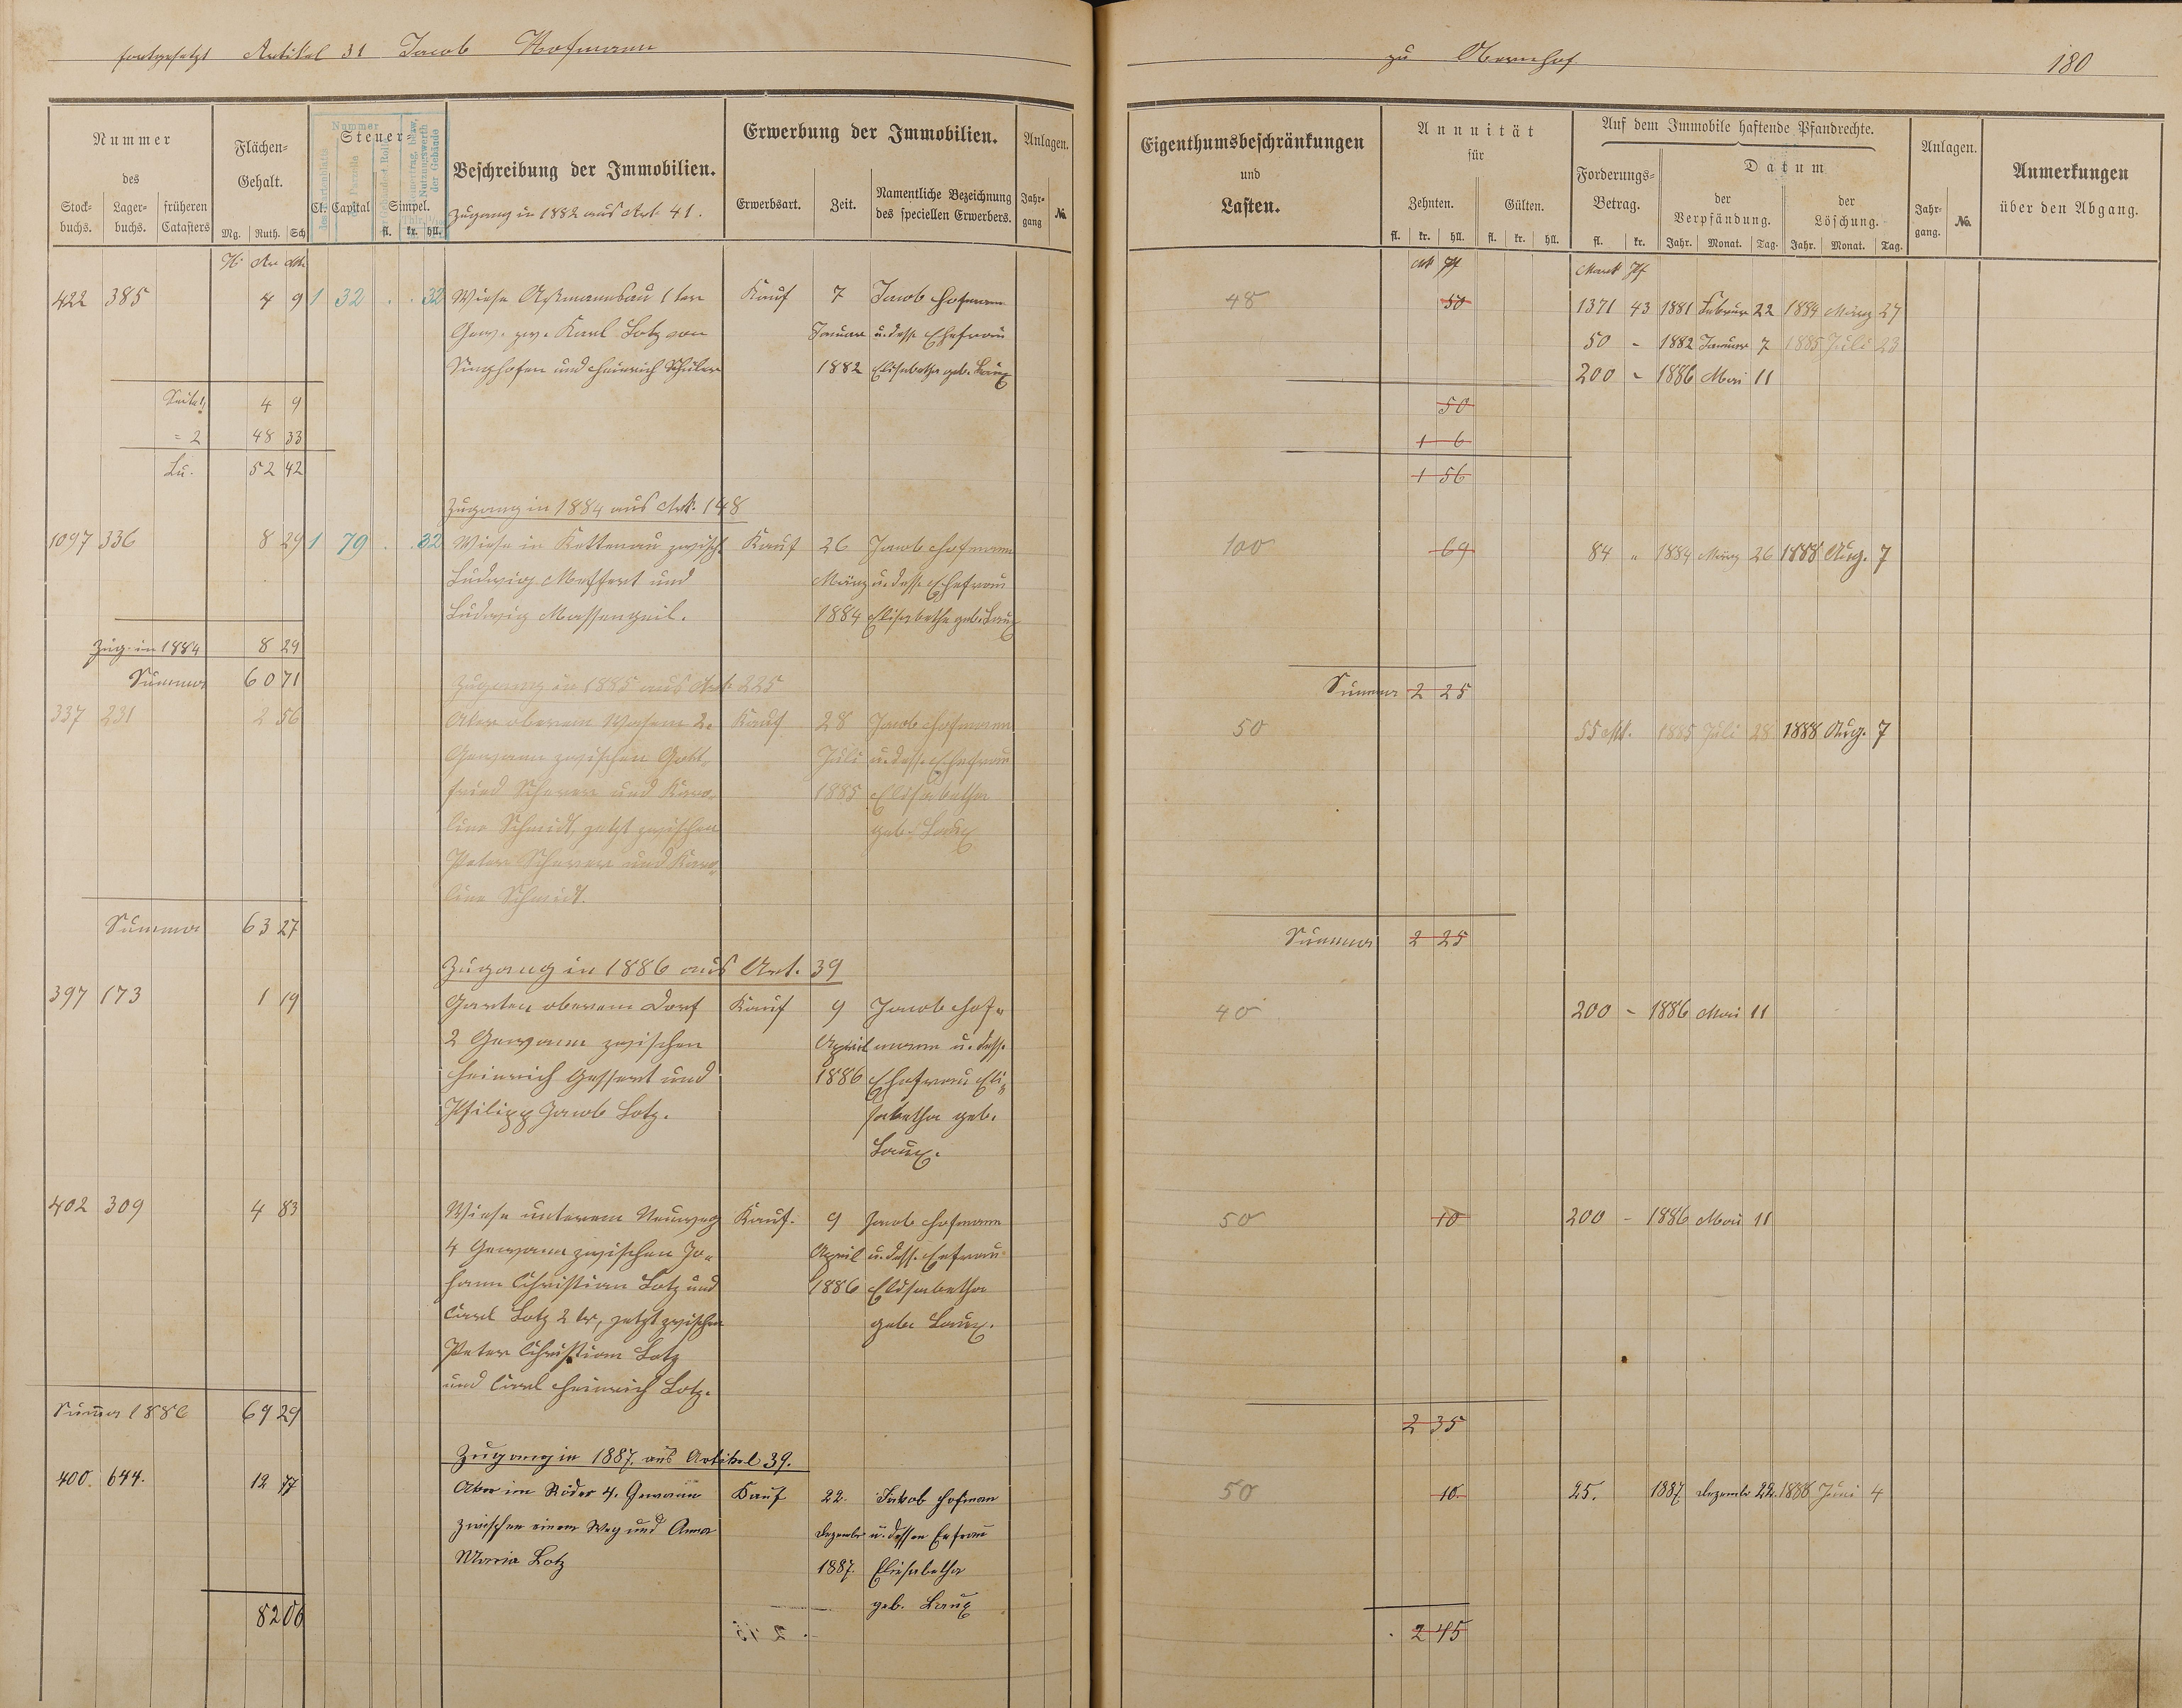 fortgesetzt Artikel 31 Jacob Hofmann
Nummer
des
Stock-
buchs.
Lager-
buchs.
früheren
Catasters
Flächen-
Gehalt.
Mg. Ruth. Sch
Steuer-
Cl. Capital Simpel.
fl. kr. hll.
Nummer
des Kartenblatts
der Parzelle
der Gebäude
Beschreibung der Immobilien.
Zugang in 1882 aus Art. 41.
Erwerbung der Immobilien.
Erwerbsart. Zeit. Namentliche Bezeichnung
des speciellen Erwerbers.
Anlagen.
Jahr-
gang
No.
H Ar
422 385 4 9 1 32 . . 32 Wiese 1ten Kauf 7 Jacob Hofmann
Gew. zw. Karl Lotz von Januar u. dess. Ehefrau
Singhofen und Heinrich Schuler 1882 Elisabetha geb. Laux
Seite 1 4 9
" 2 48 33
Su. 52 42
Zugang in 1884 aus Art. 148
1097 336 8 29 1 79 . . 32 Wiese in Kettenau zwisch. Kauf 26 Jacob Hofmann
Ludwig Meffert und März u. dess. Ehefrau
Ludwig Massengeil. 1884 Elisabetha geb. Laux
Zug. in 1884 8 29
Summa 60 71
Zugang in 1885 aus Art. 225
337 231 2 56 Aker oberem Wasem 2. Kauf 28 Jacob Hofmann
Gewann zwischen Gott- Juli u. dess. Ehefrau
fried Scherer und Karo- 1885 Elisabetha
line Schmidt, jetzt zwischen geb. Laux
Peter Scherer und Karo-
line Schmidt.
Summa 63 27
Zugang in 1886 aus Art. 39
397 173 1 19 Garten oberem Dorf Kauf 9 Jacob Hof-
2 Gewann zwischen April mann u. dess.
Heinrich Gessert und 1886 Ehefrau Eli-
Philipp Jacob Lotz. sabetha geb.
Laux.
402 309 4 83 Wiese unterem Neuweg Kauf. 9 Jacob Hofmann
4 Gewann zwischen Jo- April u. dess. Ehefrau
hann Christian Lotz und 1886 Elisabetha
Carl Lotz 2 tr, jetzt zwischen geb. Laux.
Peter Christian Lotz
und Carl Heinrich Lotz.
Suma 1886 69 29
Zugang in 1887. aus Artikel 39.
400. 644. 12 77 Aker im Röder 4. Gewann Kauf 22. Jakob Hofman
zwischen einem Weg und Anna Dezember u. dessen Eefrau
Maria Lotz 1887. Elisabetha
geb. Laux
82 06
zu Obernhof 180
Eigenthumsbeschränkungen
und
Lasten.
Annuität
für
Zehnten. Gülten.
fl. kr. hll. fl. kr. hll.
Auf dem Immobile haftende Pfandrechte.
Forderungs-
Betrag.
fl. kr.
Datum
der
Verpfändung.
Jahr. Monat. Tag.
der
Löschung.
Jahr. Monat. Tag.
Anlagen.
Jahr-
gang.
No.
Anmerkungen
über den Abgang.
Mk Pf Mark Pf
48 50 1371 43 1881 Februar 22 1884 März 27
50 - 1882 Januar 7 1885 Juli 23
200 - 1886 Mai 11
50
1 6
1 56
100 69 84 " 1884 März 26 1888 Aug. 7
Summa 2 25
50 55 Mk. 1885 Juli 28 1888 Aug. 7
Summa 2 25
40 200 - 1886 Mai 11
50 10 200 - 1886 Mai 11
2 35
50 10 25. 1887 Dezember 22. 1888 Juni 4
2 45